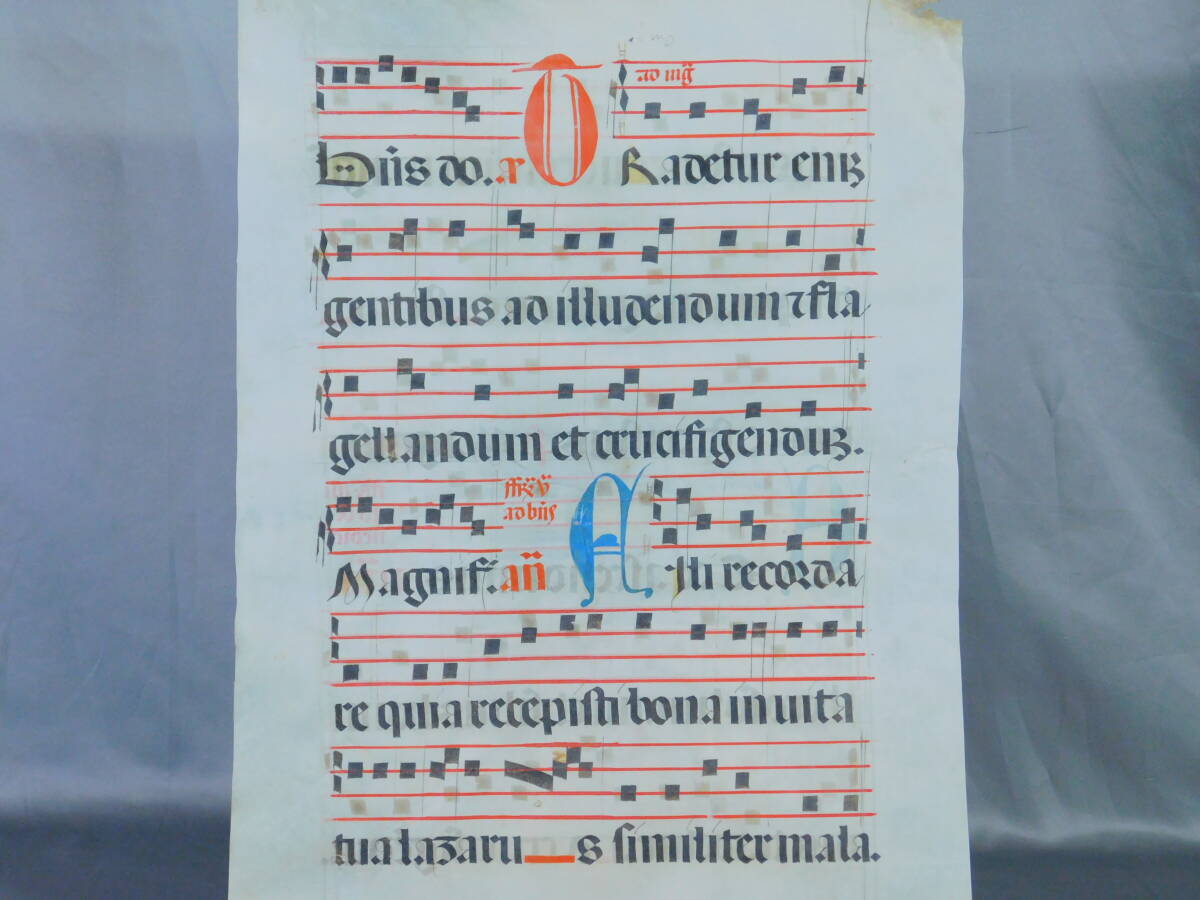 ad mg̃
Bñs do. T Radetur enīꝫ
gentibus ad illudendum ⁊ fla
gellandum et crucifigenduꝫ.
ad bñs
Magnif̃. añ F Ili recorda
re quia recepisti bona in uita
tua lazaru s similiter mala.